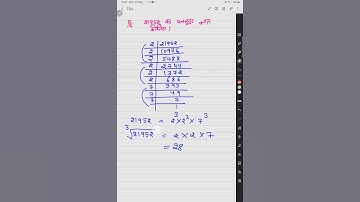 21952 का घनमूल ज्ञात
कीजिए।
2 | 21952
2 | 10976
2 | 5488
2 | 2744
2 | 1372
2 | 686
7 | 343
7 | 49
7 | 7
1
21952 = 2³ × 2³ × 7³
∛21952 = 2 × 2 × 7
= 28